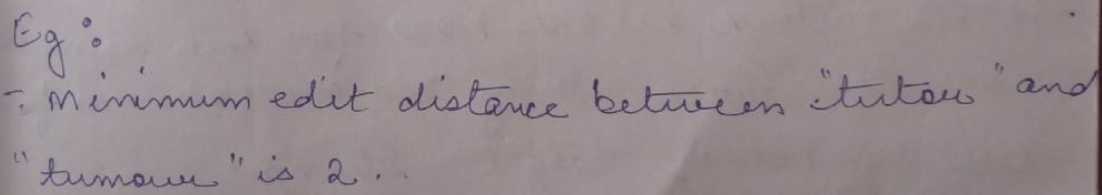 Eg :
- Minimum edit distance between "tutor" and
"tumour" is 2.